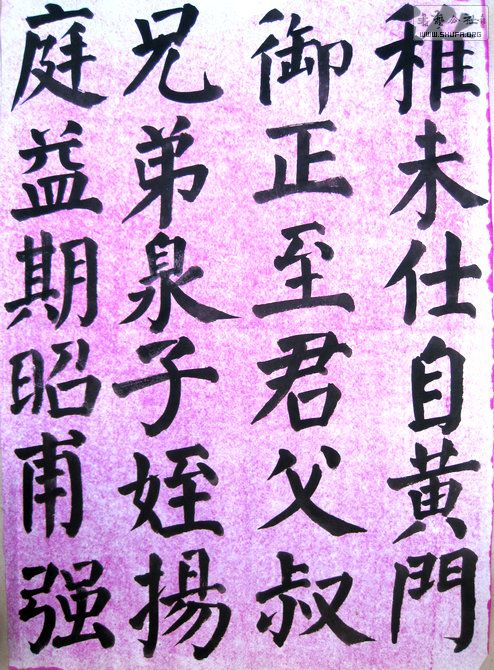 稚未仕自黄門
御正至君父叔
兄弟泉子姪揚
庭益期昭甫强
WWW.SHUFA.ORG